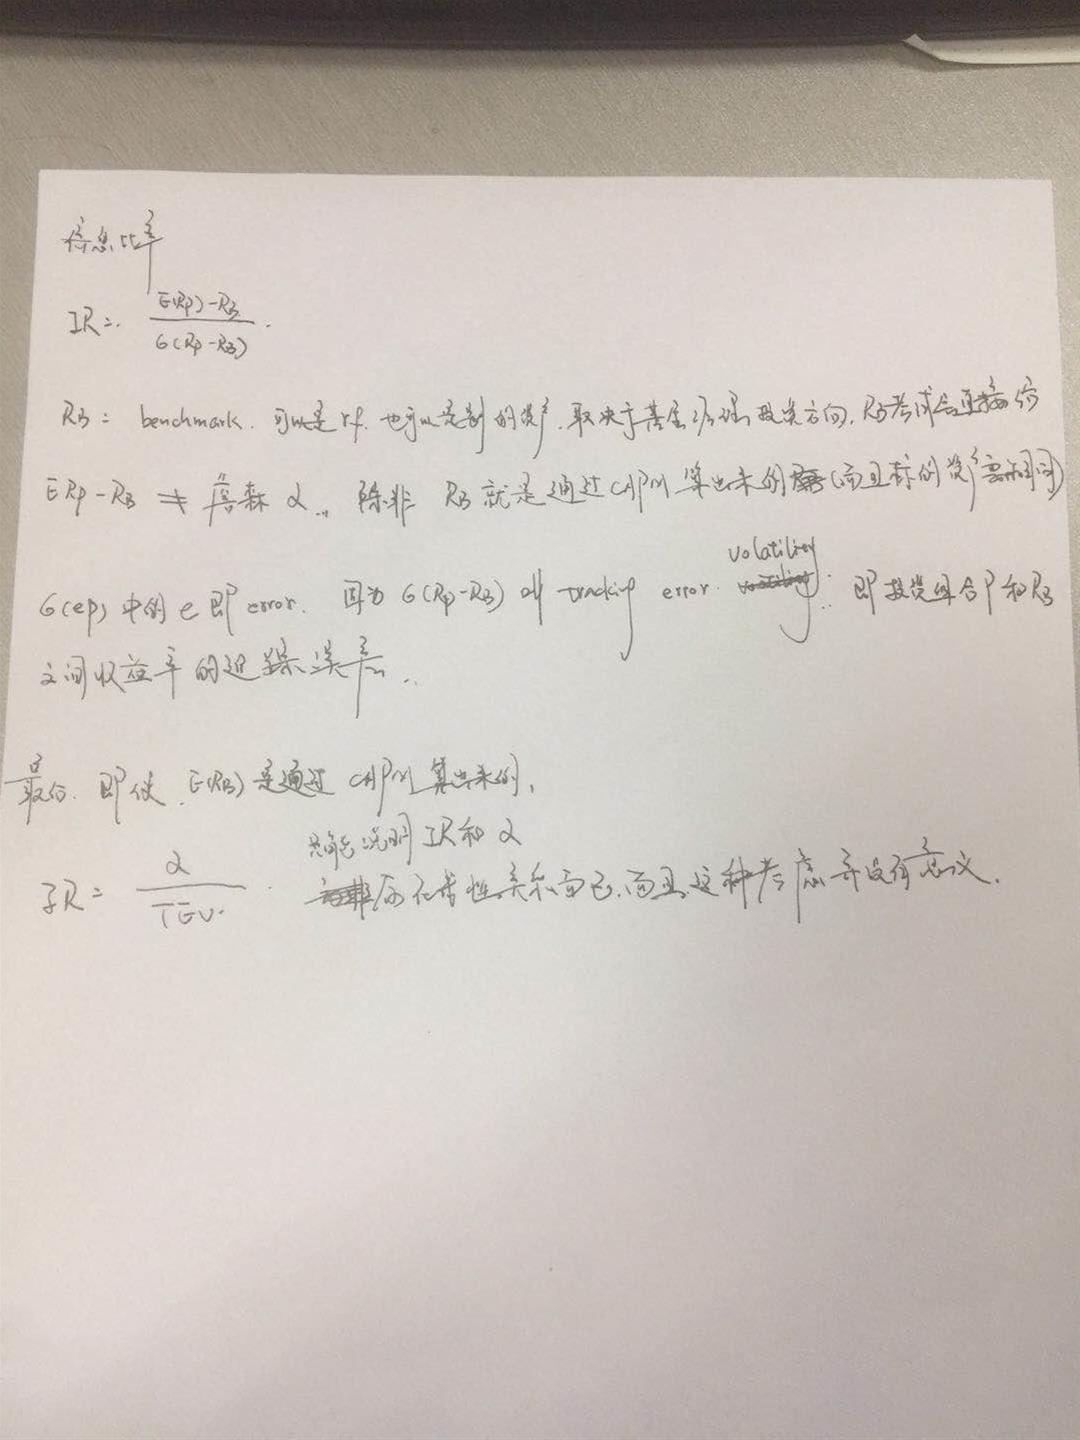 信息比率
IR = E(Rp)-RB / σ(Rp-RB).
RB = benchmark. 可以是rf. 也可以是别的资产. 取决于基金经理投资方向. RB考试会直接给
ERp-RB ≠ 詹森α.. 除非 RB就是通过CAPM算出来的(而且标的资产要相同)
σ(ep)中的e即error. 因为σ(Rp-RB)叫tracking error volatility.. 即投资组合P和RB
之间收益率的追踪误差..
最后. 即使. E(RB)是通过CAPM算出来的,
IR = α / TEV. 只能说明IR和α
存在线性关系而已. 而且这种考虑并没有意义.